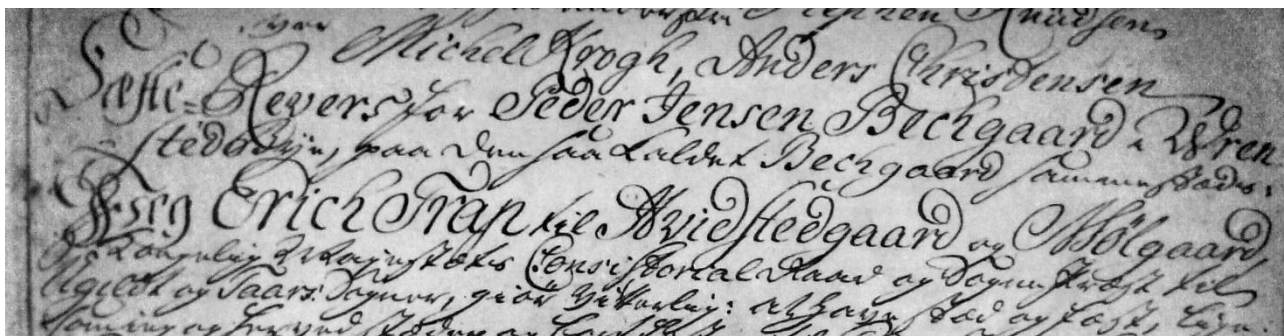 Knudsen,
Michel Krogh, Anders Christensen
Fæste-Revers for Peder Jensen Bechgaard i Wren
stedsbÿe, paa den saa kaldet Bechgaard sammestæds:
Jeg Erich Tran til Hvidstedgaard og Mölgaard
Kongelig Mayestæts Consistorial Raad og Sogne Præst til
Ugildt og Taars Sogner, giör Vitterlig: at have sted og fæst
og herved steder og